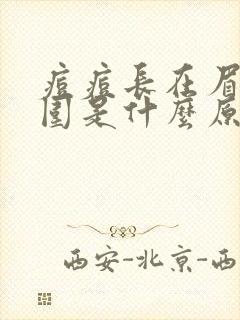 痘痘長在眉
圍是什麼原
西安-北京-西